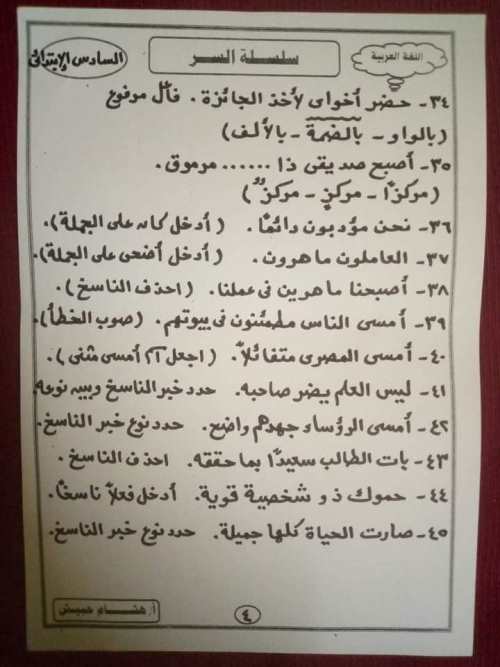 اللغة العربية
سلسلة السر
السادس الابتدائى
٣٤- حضر أخواى لأخذ الجائزة. فاعل مرفوع
(بالواو - بالضمة - بالألف)
٣٥- أصبح صديقى ذا ...... مرموق.
(مركزًا - مركزٍ - مركزٌ)
٣٦- نحن مؤدبون دائمًا. (أدخل كان على الجملة).
٣٧- العاملون ماهرون. (أدخل أضحى على الجملة).
٣٨- أصبحنا ماهرين فى عملنا. (احذف الناسخ).
٣٩- أمسى الناس مطمئنون فى بيوتهم. (صوب الخطأ).
٤٠- أمسى المصرى متفائلاً. (اجعل اسم أمسى مثنى).
٤١- ليس العلم يضر صاحبه. حدد خبر الناسخ وبين نوعه.
٤٢- أمسى الرؤساء جهدهم واضح. حدد نوع خبر الناسخ.
٤٣- بات الطالب سعيدًا بما حققه. احذف الناسخ.
٤٤- حموك ذو شخصية قوية. أدخل فعلاً ناسخًا.
٤٥- صارت الحياة كلها جميلة. حدد نوع خبر الناسخ.
٤
أ/ هشام حبيش